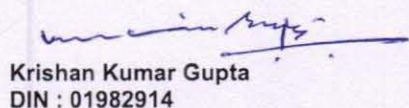 Krishan Kumar Gupta
DIN : 01982914